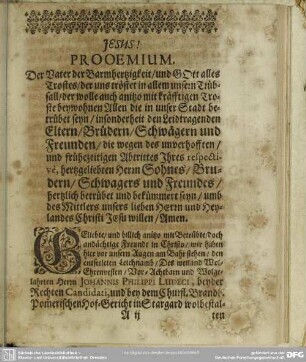 JESUS!
PROOEMIUM.
Der Vater der Barmhertzigkeit/ und GOtt alles
Trostes/ der uns tröstet in allem unsern Trüb-
sall/ der wolle auch anitzo mit kräfftigen Tro-
ste beywohnen Allen die in unser Stadt be-
trübet seyn/ insonderheit den Leidtragenden
Eltern/ Brüdern/ Schwägern und
Freunden/ die wegen des unverhofften/
und frühzeitigen Abtrittes Ihres respecti-
vè, hertzgeliebten Herrn Sohns/ Bru-
dern/ Schwagers und Freundes/
hertzlich betrübet und bekümmert seyn/ umb
des Mittlers unsers lieben Herrn und Hey-
landes Christi Jesu willen/ Amen.
GEliebte/ und billich anitzo mit Betrübte/ doch
andächtige Freunde in Christo/ wir haben
hier vor unsern Augen am Bahr stehen/ den
entseelten Leichnamb/ Des weiland Wol-
Ehrenvesten/ Vor-Achtbarn und Wolge-
lahrten Herrn JOHANNIS PHILIPPI LUDECI, beyder
Rechten Candidati, und bey dem Churfl. Brandb.
Pomerischen Hof-Gericht in Stargard wolbestal-
A ij ten